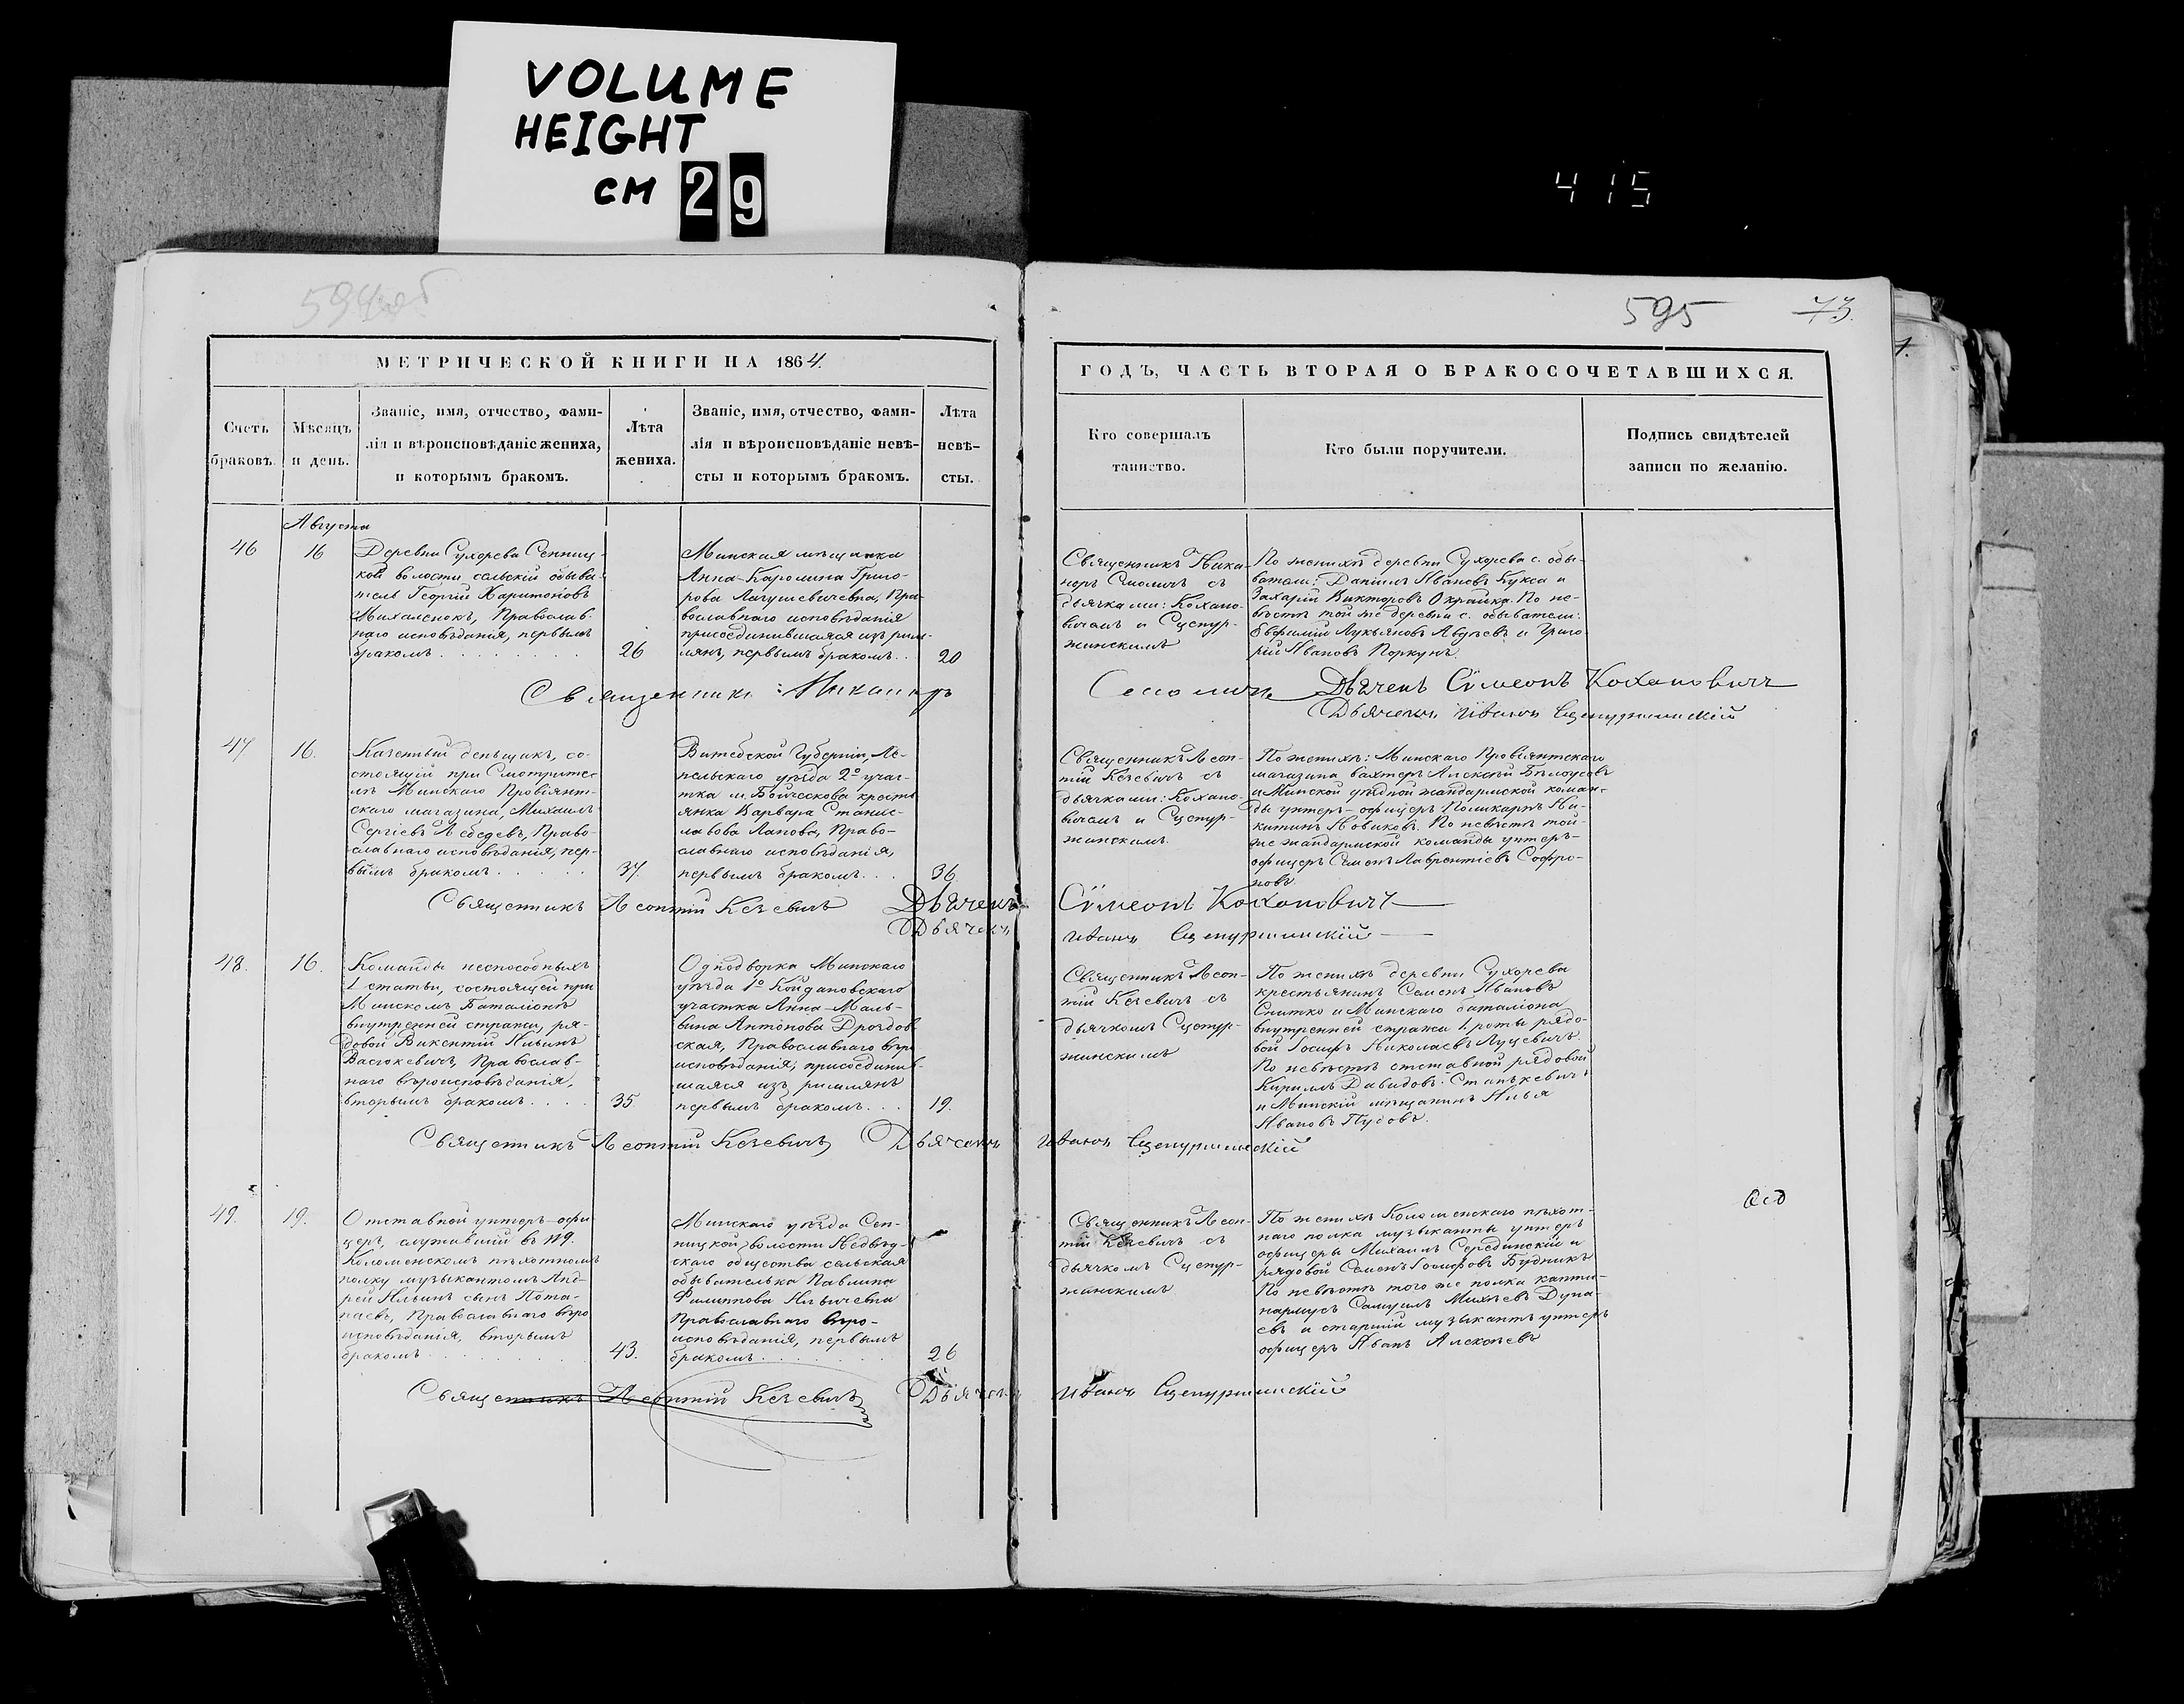 VOLUME
HEIGHT
CM 29
415
594об
595
73.
МЕТРИЧЕСКОЙ КНИГИ НА 1864.
ГОДЪ, ЧАСТЬ ВТОРАЯ О БРАКОСОЧЕТАВШИХСЯ.
Счетъ
браковъ.
Мѣсяцъ
и день.
Званіе, имя, отчество, фами-
лія и вѣроисповѣданіе жениха,
и которымъ бракомъ.
Лѣта
жениха.
Званіе, имя, отчество, фами-
лія и вѣроисповѣданіе невѣ-
сты и которымъ бракомъ.
Лѣта
невѣ-
сты.
Кто совершалъ
таинство.
Кто были поручители.
Подпись свидѣтелей
записи по желанію.
Августа
46
16
Деревни Сухорева Сенниц-
кой волости сельскій обыва-
тель Георгій Харитоновъ
Михаленокъ, Православ-
наго исповѣданія, первымъ
бракомъ
26
Минская мѣщанка
Анна-Каролина Григо-
рова Лагушевичевна, Пра-
вославнаго исповѣданія
присоединившаяся изъ рим-
лянъ, первымъ бракомъ
20
Священникъ Ника-
норъ Смоличъ съ
дьячками: Кохано-
вичемъ и Сцепур-
жинскимъ
По женихѣ деревни Сухорева с. обы-
ватели: Даніилъ Ивановъ Кукса и
Захарій Викторовъ Окрайка. По не-
вѣстѣ той же деревни с. обыватели:
Евфимій Лукьяновъ Авдѣевъ и Григо-
рій Ивановъ Поркунъ.
Священникъ: Никаноръ
Смоличъ Дьячекъ Сѵмеонъ Кохановичъ
Дьячекъ Иванъ Сцепуржинскій
47
16.
Казенный деньщикъ, со-
стоящій при Смотрите-
лѣ Минскаго Провіянт-
скаго магазина, Михаилъ
Сергіевъ Лебедевъ, Право-
славнаго исповѣданія, пер-
вымъ бракомъ
37.
Витебской Губерніи, Ле-
пельскаго уѣзда 2º учас-
тка м. Бочейкова кресть
янка Варвара Станис-
лавова Лапова, Право-
славнаго исповѣданія,
первымъ бракомъ
36
Священникъ Леон-
тій Кезевичъ съ
дьячками: Кохано-
вичемъ и Сцепур-
жинскимъ.
По женихѣ: Минскаго Провіянтскаго
магазина вахтеръ Алексѣй Бѣлоусовъ
и Минской уѣздной жандармской коман-
ды унтеръ-офицеръ Поликарпъ Ни-
китинъ Новиковъ. По невѣстѣ той-
же жандармской команды унтеръ-
офицеръ Семенъ Лаврентіевъ Софро-
новъ.
Священникъ Леонтій Кезевичъ Дьячекъ Сѵмеонъ Кохановичъ
Дьячекъ Иванъ Сцепуржинскій
48.
16.
Команды неспособныхъ
1 статьи, состоящей при
Минскомъ Баталіонѣ
внутренней стражи, ря-
довой Викентій Ильинъ
Васюкевичъ, Православ-
наго вѣроисповѣданія,
вторымъ бракомъ
35
Однодворка Минскаго
уѣзда 1º Койдановскаго
участка Анна-Маль-
вина Антонова Дроздов-
ская, Православнаго вѣро
исповѣданія, присоединив-
шаяся изъ римлянъ
первымъ бракомъ
19.
Священникъ Леон-
тій Кезевичъ съ
дьячкомъ Сцепур-
жинскимъ
По женихѣ деревни Сухорева
крестьянинъ Семенъ Ивановъ
Снитко и Минскаго баталіона
внутренней стражи 1 роты рядо-
вой Іосифъ Николаевъ Луцевичъ.
По невѣстѣ отставной рядовой
Кириллъ Давидовъ Станкевичъ
и Минскій мѣщанинъ Илья
Ивановъ Пудовъ.
Священникъ Леонтій Кезевичъ Дьячекъ Иванъ Сцепуржинскій
49.
19.
Отставной унтеръ-офи
церъ, служившій въ 119.
Коломенскомъ пѣхотномъ
полку музыкантомъ Анд-
рей Ильинъ сынъ Пота-
паевъ, Православнаго вѣро
исповѣданія, вторымъ
бракомъ
43.
Минскаго уѣзда Сен-
ницкой волости
скаго общества сельская
обывателька Павлина
Филиппова Ильичевна
Православнаго вѣро-
исповѣданія, первымъ
бракомъ
26
Священникъ Леон-
тій Кезевичъ съ
дьячкомъ Сцепур-
жинскимъ
По женихѣ Коломенскаго пѣхот-
наго полка музыканты унтеръ
офицеры Михаилъ Серединскій и
рядовой Семенъ Іосифовъ Будникъ
По невѣстѣ того же полка капти-
нармусъ Самуилъ Михѣевъ Дуна-
евъ и старшій музыкантъ унтеръ
офицеръ Иванъ Алексѣевъ
Священникъ Леонтій Кезевичъ Дьячекъ Иванъ Сцепуржинскій